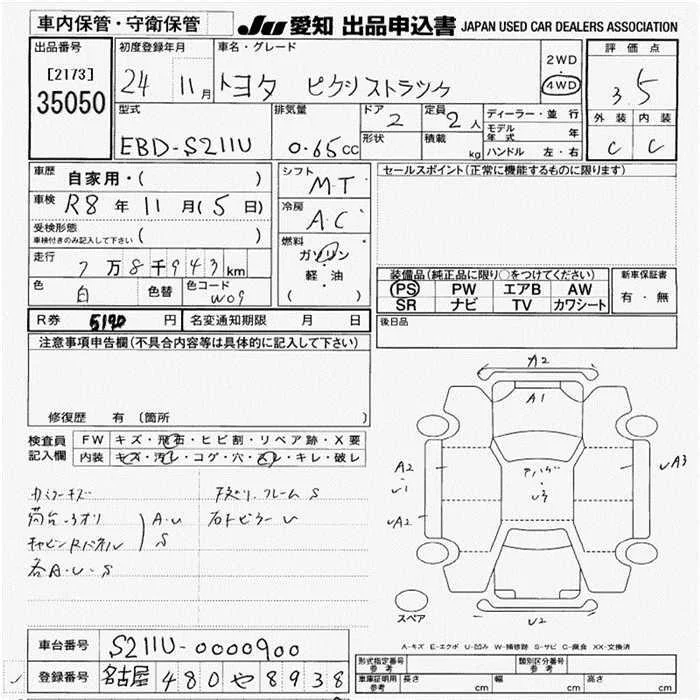 車内保管・守衛保管
JU 愛知 出品申込書 JAPAN USED CAR DEALERS ASSOCIATION
出品番号
[2173]
35050
初度登録年月
24 11月
車名・グレード
トヨタ ピクシストラック
2WD
・
4WD
評価点
3.5
外装 内装
C C
型式
EBD-S211U
排気量
0.65cc
ドア
2
形状
定員
2人
積載
kg
ディーラー・並行
モデル年式 年
ハンドル 左・右
車歴 自家用・( )
車検 R8年11月(5日)
受検形態
車検付きのみ記入して下さい ( )
走行 7万8千943km
色 白 色替 色コード W09
シフト
MT
冷房
A.C
燃料
ガソリン
・
軽・油
( )
セールスポイント(正常に機能するものに限ります)
装備品(純正品に限り○をつけてください)
PS PW エアB AW
SR ナビ TV カワシート
新車保証書
有・無
後日品
R券 5190円 名変通知期限 月 日
注意事項申告欄(不具合内容等は具体的に記入して下さい)
修復歴 有(箇所 )
検査員記入欄
FW キズ・飛石・ヒビ割・リペア跡・X要
内装 キズ・汚レ・コゲ・穴・スレ・キレ・破レ
カミラーキズ
荷台
A・U
S
各A・U・S
フレームS
右トビラーU
A2
A1
A2
U1
UA2
UA3
U3
U2
スペア
A-キズ E-エクボ U-凹み W-補修跡 S-サビ C-腐食 XX-交換済
車台番号 S211U-0000900
登録番号 名古屋 480 や 8938
形式指定番号 参考 類別区分番号 参考
車庫証明用 参考 長さ cm 幅 cm 高さ cm